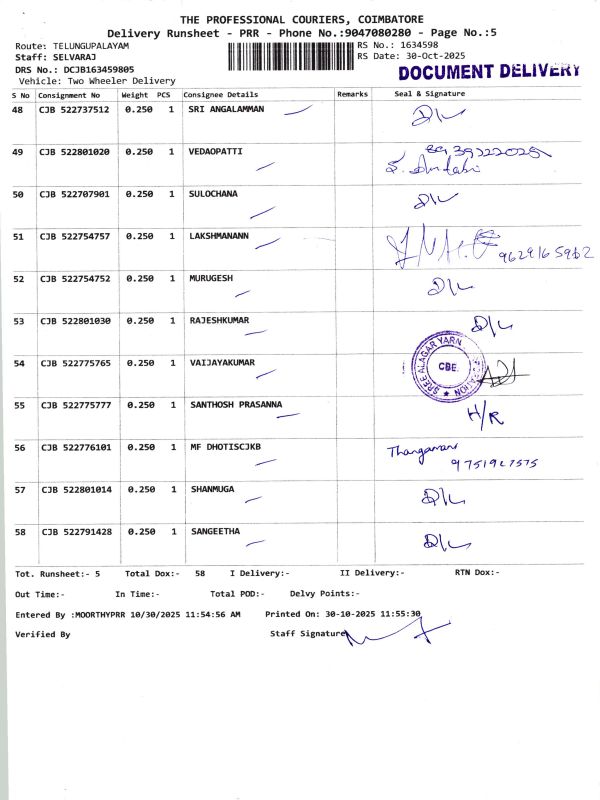 THE PROFESSIONAL COURIERS, COIMBATORE
Delivery Runsheet - PRR - Phone No.:9047080280 - Page No.:5
Route: TELUNGUPALAYAM RS No.: 1634598
Staff: SELVARAJ RS Date: 30-Oct-2025
DRS No.: DCJB163459805 DOCUMENT DELIVERY
Vehicle: Two Wheeler Delivery
S No Consignment No Weight PCS Consignee Details Remarks Seal & Signature
48 CJB 522737512 0.250 1 SRI ANGALAMMAN D/L
49 CJB 522801020 0.250 1 VEDAOPATTI
50 CJB 522707901 0.250 1 SULOCHANA D/L
51 CJB 522754757 0.250 1 LAKSHMANANN 9629165962
52 CJB 522754752 0.250 1 MURUGESH D/L
53 CJB 522801030 0.250 1 RAJESHKUMAR D/L
54 CJB 522775765 0.250 1 VAIJAYAKUMAR SREE ALAGAR YARN CBE.
55 CJB 522775777 0.250 1 SANTHOSH PRASANNA H/R
56 CJB 522776101 0.250 1 MF DHOTISCJKB
9751927575
57 CJB 522801014 0.250 1 SHANMUGA D/L
58 CJB 522791428 0.250 1 SANGEETHA D/L
Tot. Runsheet:- 5 Total Dox:- 58 I Delivery:- II Delivery:- RTN Dox:-
Out Time:- In Time:- Total POD:- Delvy Points:-
Entered By :MOORTHYPRR 10/30/2025 11:54:56 AM Printed On: 30-10-2025 11:55:30
Verified By Staff Signature